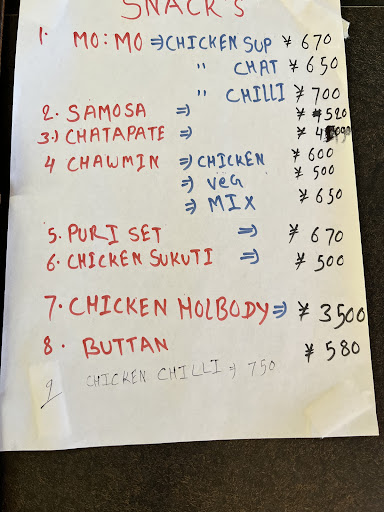 SNACK'S
1. MO:MO ⇒ CHICKEN SUP ¥ 670
" CHAT ¥ 650
" CHILLI ¥ 700
2. SAMOSA ⇒ ¥ 520
3.) CHATAPATE ⇒ ¥
4 CHAWMIN ⇒ CHICKEN ¥ 600
⇒ veG ¥ 500
⇒ MIX ¥ 650
5. PURI SET ⇒ ¥ 670
6. CHICKEN SUKUTI ⇒ ¥ 500
7. CHICKEN HOLBODY ⇒ ¥ 3500
8. BUTTAN ¥ 580
9 CHICKEN CHILLI ⇒ 750